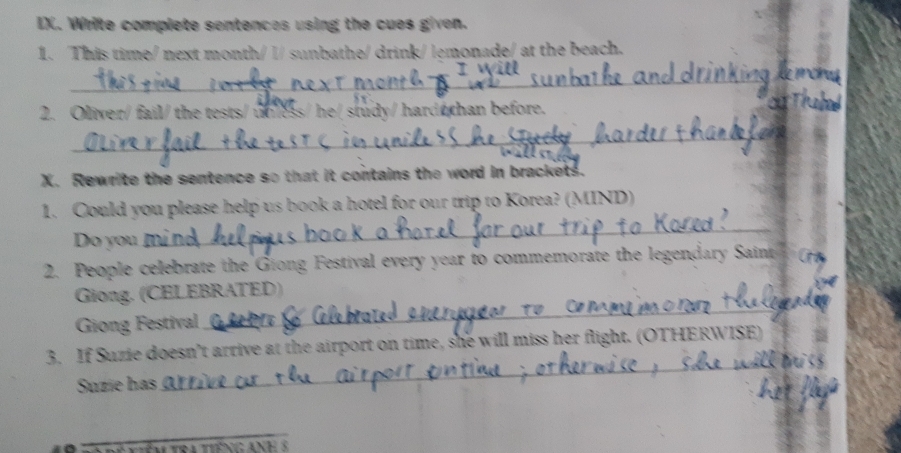 IX. Write complete sentences using the cues given.
1. This time/ next month/ I/ sunbathe/ drink/ lemonade/ at the beach.
this time next month I will sunbathe and drinking lemona
at The
2. Oliver/ fail/ the tests/ unless/ he/ study/ hard than before.
Oliver fail the tests unless he harder than
will study
X. Rewrite the sentence so that it contains the word in brackets.
1. Could you please help us book a hotel for our trip to Korea? (MIND)
Do you mind helping us book a hotel for our trip to Korea?
2. People celebrate the Giong Festival every year to commemorate the legendary Saint
Giong. (CELEBRATED)
Giong Festival is celebrated every year to the
3. If Suzie doesn't arrive at the airport on time, she will miss her flight. (OTHERWISE)
Suzie has arrive at the airport ; otherwise, she will miss
her
TRA TIẾNG ANH 8